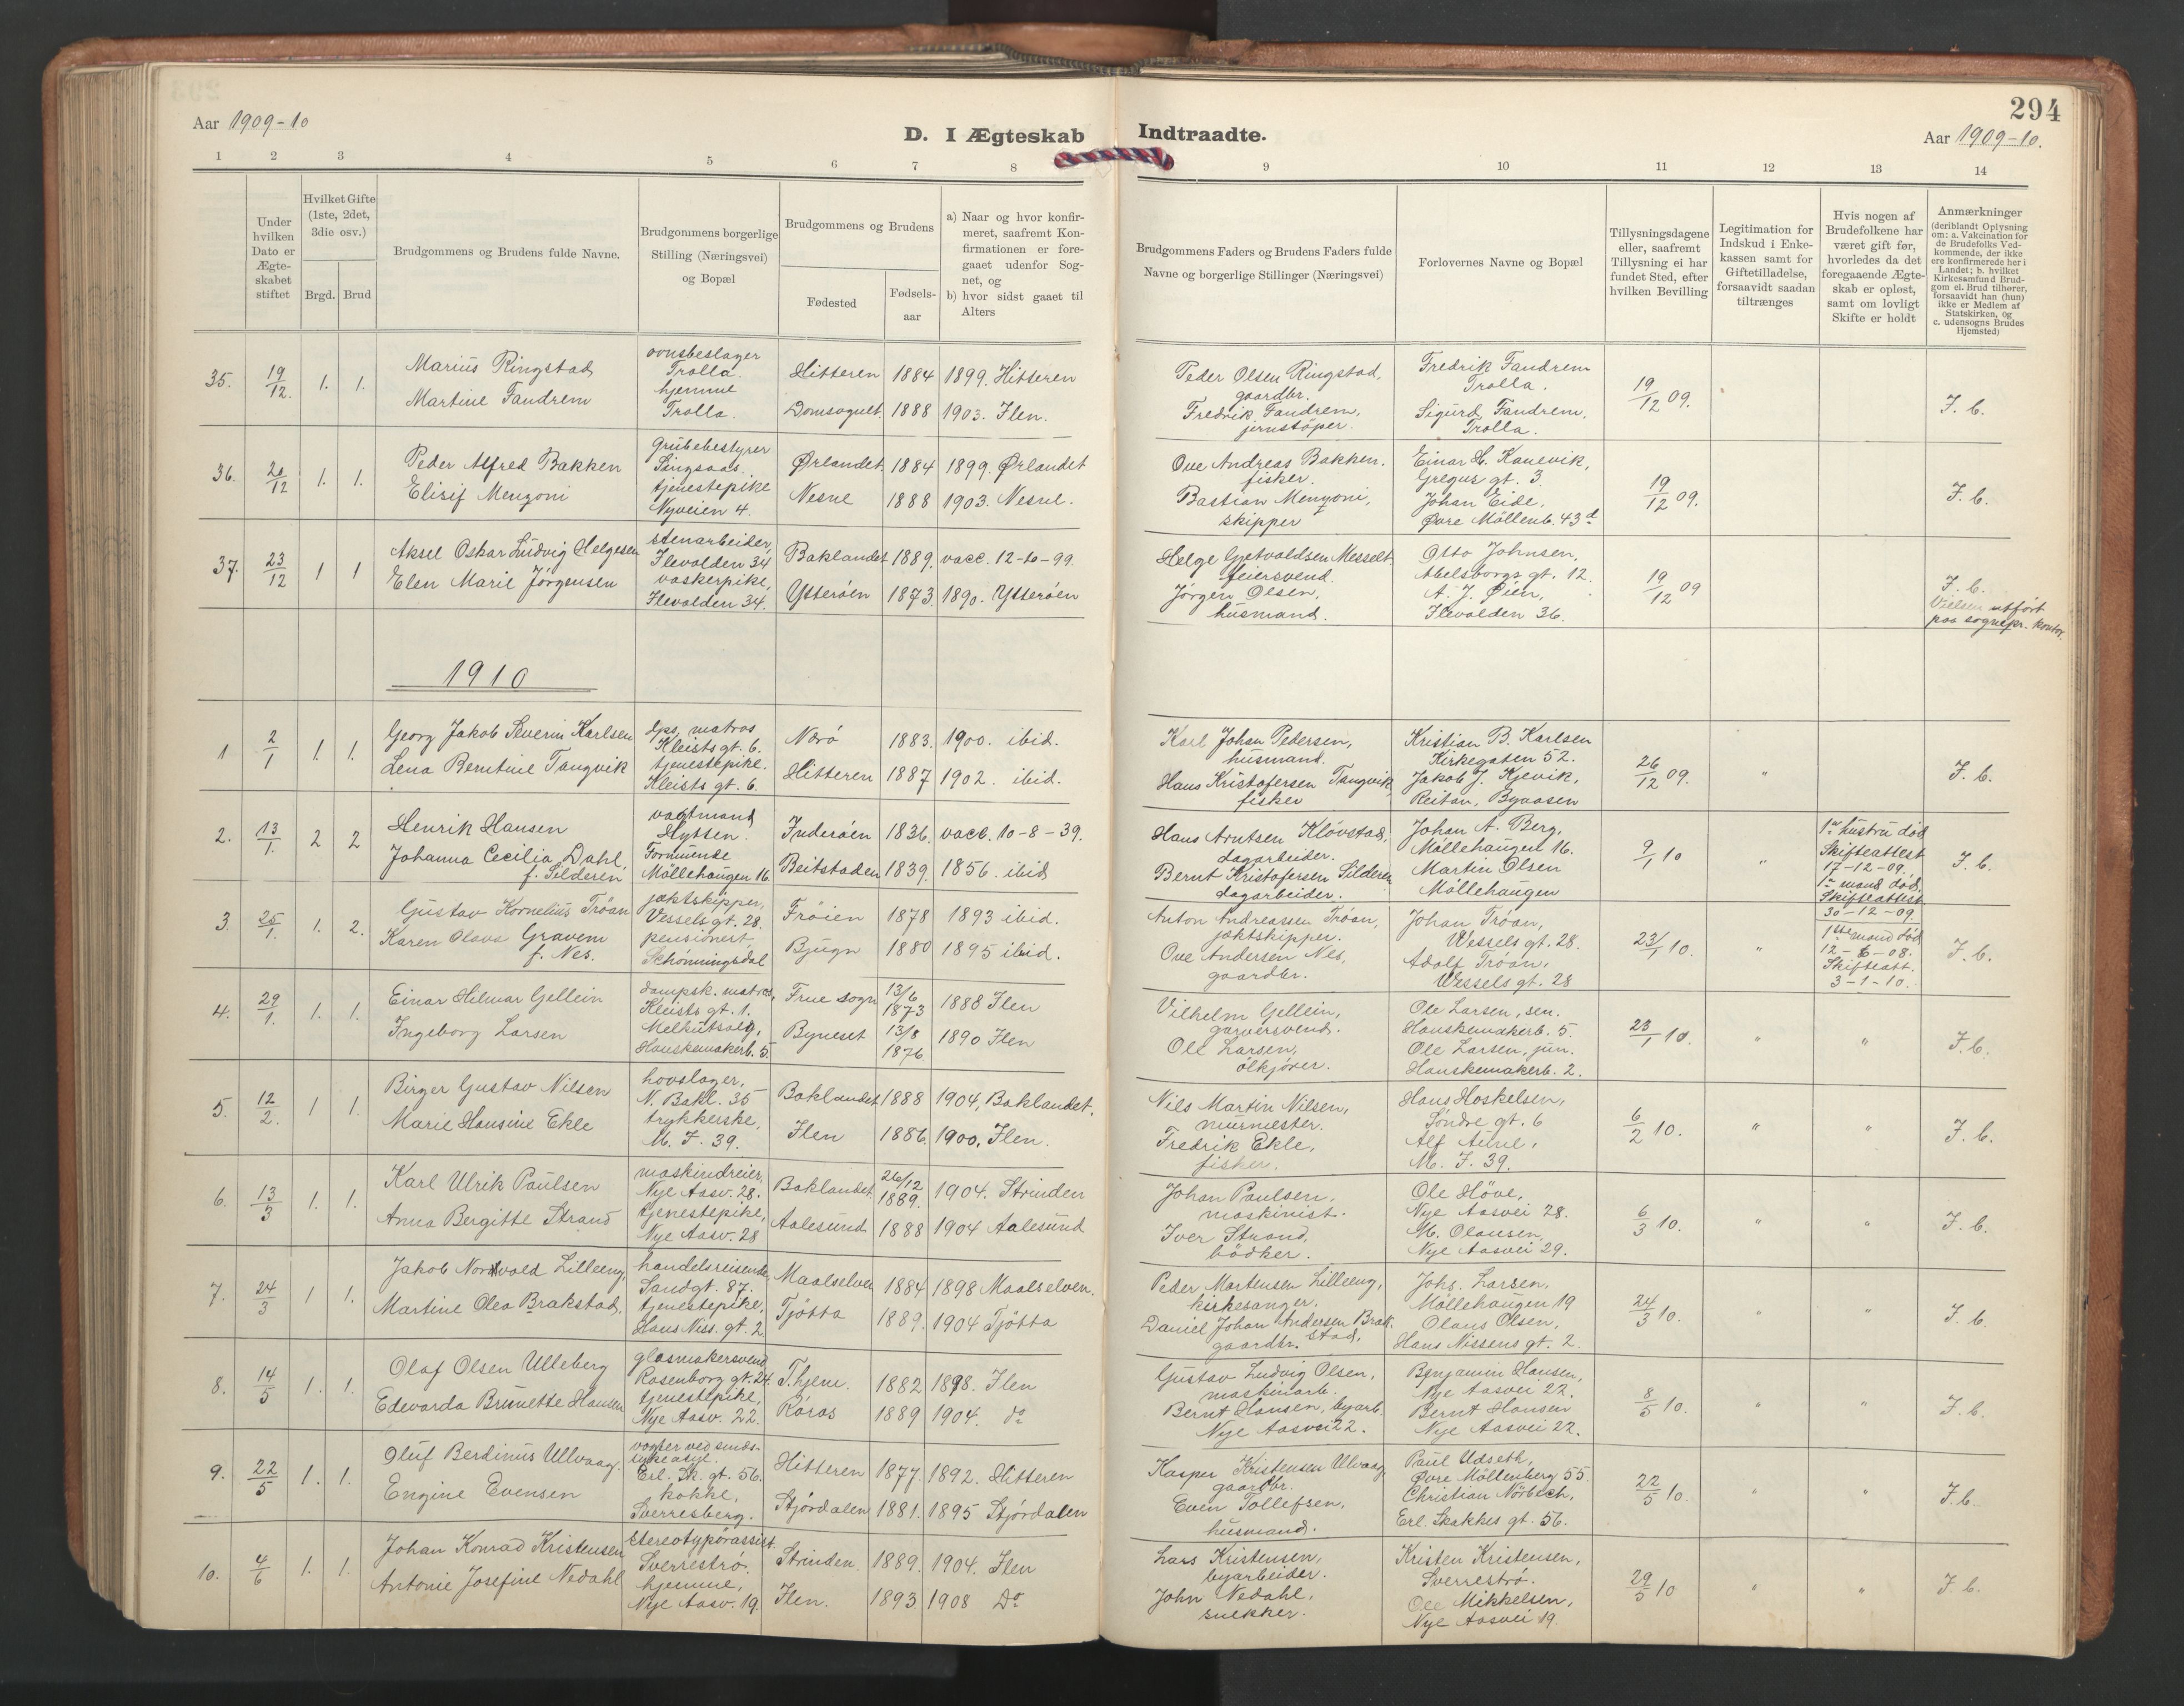 294
Aar 1909-10
D. I Ægteskab Indtraadte.
Aar 1909-10.
1 2 3 4 5 6 7 8 9 10 11 12 13 14
Under hvilken Dato er Ægte-skabet stiftet
Hvilket Gifte (1ste, 2det, 3die osv.)
Brgd. Brud
Brudgommens og Brudens fulde Navne.
Brudgommens borgerlige Stilling (Næringsvei) og Bopæl
Brudgommens og Brudens
Fødested
Fødsels-aar
a) Naar og hvor konfir-meret, saafremt Kon-firmationen er fore-gaaet udenfor Sog-net, og
b) hvor sidst gaaet til Alters
Brudgommens Faders og Brudens Faders fulde Navne og borgerlige Stillinger (Næringsvei)
Forlovernes Navne og Bopæl
Tillysningsdagene eller, saafremt Tillysning ei har fundet Sted, efter hvilken Bevilling
Legitimation for Indskud i Enke-kassen samt for Giftetilladelse, forsaavidt saadan tiltrænges
Hvis nogen af Brudefolkene har været gift før, hvorledes da det foregaaende Ægte-skab er opløst, samt om lovligt Skifte er holdt
Anmærkninger (deriblandt Oplysning om: a. Vakcination for de Brudefolks Ved-kommende, der ikke ere konfirmerede her i Landet; b. hvilket Kirkesamfund Brud-gom el. Brud tilhører, forsaavidt han (hun) ikke er Medlem af Statskirken, og c. udensogns Brudes Hjemsted)
35. 19/12. 1. 1.
Marius Ringstad
Martine Fandrem
ovnsbeslager
Trolla.
hjemme
Trolla.
Hitteren 1884 1899. Hitteren
Domsognet. 1888 1903. Ilen.
Peder Olsen Ringstad,
gaardbr.
Fredrik Fandrem,
jernstöper.
Fredrik Fandrem
Trolla.
Sigurd Fandrem,
Trolla.
19/12 09.
J. b.
36. 20/12 1. 1.
Peder Alfred Bakken
Elisif Menzoni
Grubebestyrer
Singsaas.
tjenestepike
Nyveien 4.
Ørlandet 1884 1899. Ørlandet
Nesne 1888 1903. Nesne.
Ove Andreas Bakken.
fisker.
Bastian Menzoni,
skipper
Einar H. Kanevik,
Gregus gt. 3.
Johan Eide,
Øvre Möllenb. 43d
19/12 09.
J. b.
37. 23/12 1 1
Aksel Oskar Ludvig Helgesen
Elen Marie Jörgensen
stenarbeider,
Ilevolden 34
vaskerpike,
Ilevolden 34.
Baklandet 1889. vacc. 12-10-99.
Ytteröen 1873. 1890. Ytteröen
Helge Gjetvoldsen Messelt
feiersvend.
Jörgen Olsen,
husmand.
Otto Johnsen,
Abelsborgs gt. 12.
A. J. Øien,
Ilevolden 36.
19/12 09
J. b.
Vielsen utfört
paa sognepr. kontor.
1910
1 2/1 1. 1.
Georg Jakob Severin Karlsen
Lena Berntine Tangvik
dps. matros
Kleists gt. 6.
tjenestepike.
Kleists gt. 6.
Nærö 1883. 1900. ibid.
Hitteren 1887 1902. ibid.
Karl Johan Pedersen,
husmand.
Hans Kristofersen Tangvik,
fisker
Kristian B. Karlsen
Kirkegaten 52.
Jakob J. Kjevik,
Reitan, Bynasen
26/12 09. " J. b.
2. 13/1. 2 2
Henrik Hansen
Johanna Cecilia Dahl,
f. Silderen
vagtmand
Hytten.
Formuende
Möllehaugen 16.
Inderöen 1836. vacc. 10-8-39.
Beitstaden 1839. 1856. ibid
Hans Arntsen Klövstad,
dagarbeider.
Bernt Kristofersen Silderen
dagarbeider.
Johan A. Berg,
Möllehaugen 16.
Martin Olsen
Möllehaugen
9/1 10 "
1e hustru död
Skifteattest
17-12-09.
1e mand död,
Skifteattest
30-12-09.
J. b.
3. 25/1. 1. 2.
Gustav Kornelius Tröan
Karen Olava Gravem
f. Nes.
jæktskipper,
Vessels gt. 28.
pensionert
Schönningsdal
Fröien 1878 1893 ibid.
Bjugn 1880 1895 ibid.
Anton Andreassen Tröan,
jæktskipper.
Ove Andersen Nes,
gaardbr.
Johan Tröan,
Wessels gt. 28.
Adolf Tröan,
Wessels gt. 28
23/1 10. "
1ste mand död
12-6-08.
Skifteatt.
3-1-10.
J. b.
4. 29/1. 1. 1.
Einar Hilmar Gellein
Ingeborg Larsen
dampsk. matros,
Kleists gt. 1.
Melkutsalg,
Hanskemakerb. 5.
Frue sogn 13/6 1873 1888 Ilen
Byneset 13/8 1876 1890 Ilen
Vilhelm Gellein,
garversvend.
Ole Larsen,
ölkjörer.
Ole Larsen, sen.
Hanskemakerb. 5.
Ole Larsen, jun.
Hanskemakerb. 2.
23/1 10. " " J. b.
5. 12/2. 1 1.
Birger Gustav Nilsen
Marie Hansine Ekle
hovslager,
N. Bakl. 35
trykkerske,
M. J. 39.
Baklandet 1888 1904, Baklandet.
Ilen 1886. 1900, Ilen.
Nils Martin Nilsen,
murmester.
Fredrik Ekle,
fisker.
Hans Hoskelsen,
Söndre gt. 6
Alf Aune,
M. J. 39.
6/2 10. " " J. b.
6. 13/3 1. 1.
Karl Ulrik Paulsen
Anna Bergitte Strand
maskindreier,
Nye Aasv. 28.
tjenestepike,
Nye Aasv. 28
Baklandet. 26/12 1889. 1904. Strinden
Aalesund 1888 1904 Aalesund
Johan Paulsen,
maskinist.
Iver Strand,
bödker.
Ole Höve,
Nye Aasvei 28.
M. Olausen,
Nye Aasvei 29.
6/3 10. " " J. b.
7. 24/3 1 1.
Jakob Nordvald Lilleeng,
Martine Olea Brakstad,
handelsreisende
Sandgt. 87.
tjenestepike,
Hans Niss. gt. 2
Maalselven 1884 1898 Maalselven.
Tjötta 1889. 1904 Tjötta
Peder Martensen Lilleeng,
kirkesanger.
Daniel Johan Andersen Brak-
stad,
gaardbr.
Johs. Larsen,
Möllehaugen 19
Olaus Olsen,
Hans Nissens gt. 2.
24/3 10. " " J. b.
8. 14/5 1. 1.
Olaf Olsen Ulleberg
Edevarda Brunette Hansen
glasmakersvend
Rosenborg gt. 24.
tjenestepike,
Nye Aasv. 22.
T.hjem. 1882 1898. Ilen
Röros 1889 1904. do
Gustav Ludvig Olsen,
maskinarb.
Bernt Hansen, byarb.
Nye Aasvei 22.
Benjamin Hansen,
Nye Aasvei 22.
Bernt Hansen
Nye Aasvei 22.
8/5 10. " " J. b.
9. 22/5 1. 1.
Oluf Berdinus Ulvaag.
Engine Evensen
vogter ved sinds-
sykeasyl.
Erl. Sk. gt. 56.
kokke,
Sverresberg.
Hitteren 1877. 1892. Hitteren
Stjördalen 1881. 1895 Stjördalen
Kasper Kristensen Ulvaag,
gaardbr.
Even Tollefsen,
husmand.
Paul Udseth,
Øvre Möllenberg 55.
Christian Nörbech,
Erl. Skakkes gt. 56.
22/5 10. " " J. b.
10. 4/6 1. 1.
Johan Konrad Kristensen
Antonie Josefine Nedahl
stereotypörassist.
Sverreströ.
hjemme,
Nye Aasv. 19.
Strinden. 1889. 1904. Ilen
Ilen. 1893 1908 Do
Lars Kristensen,
byarbeider.
John Nedahl,
snekker.
Kristen Kristensen,
Sverreströ.
Ole Mikkelsen,
Nye Aasvei 19.
29/5 10 " " J. b.